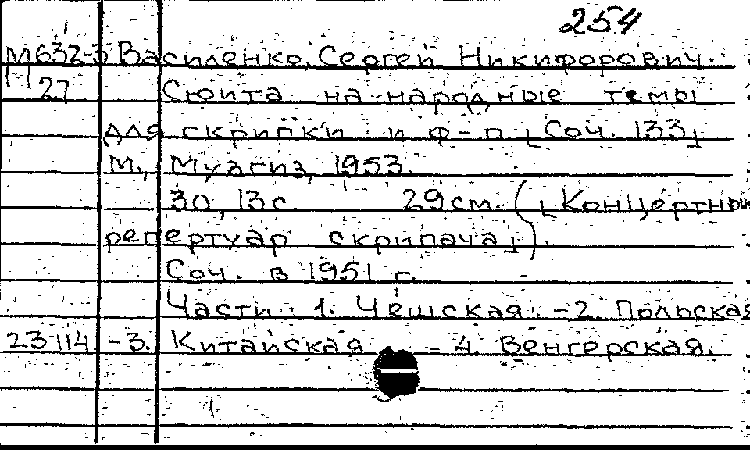 254
М632-3 Василенко, Сергей Никифорович.
27 Сюита на народные темы
для скрипки и ф-п [Соч. 133]
М., Музгиз, 1953.
30, 13 с. 29 см. ([Концертный
репертуар скрипача]).
Соч. в 1951 г.
Части: 1. Чешская. -2. Польская
23114 -3. Китайская. -4. Венгерская.